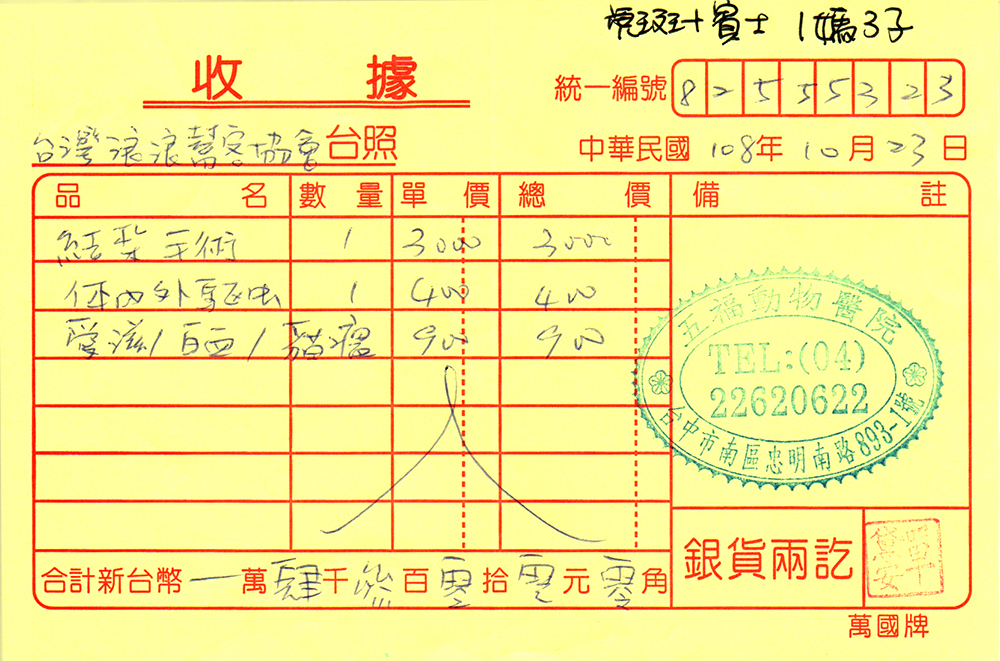 虎斑+賓士 1媽3子
收據
統一編號 82555323
台灣浪浪 協會 台照
中華民國 108年 10月 23日
品名 數量 單價 總價 備註
結紮手術 1 3000 3000
体內外驅虫 1 400 400
愛滋/白血/貓瘟 900 900
五福動物醫院
TEL:(04)
22620622
台中市南區忠明南路893-1號
合計新台幣 一萬肆千叁百零拾零元零角
銀貨兩訖
萬國牌